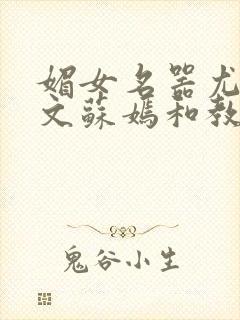 媚女名器尤
文蘇媽和教
鬼谷小生